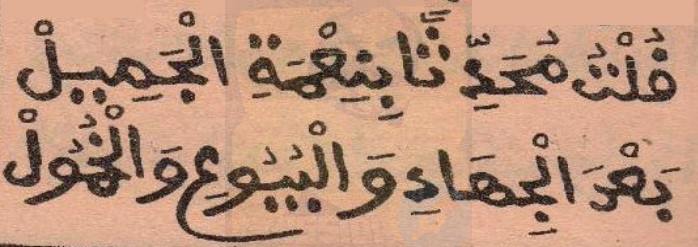 قُلْتُ مُحَدِّثًا بِنِعْمَةِ الْجَمِيلْ
بَعْدَ الْجِهَادِ وَالْبُيُوعِ وَالْخُمُولْ